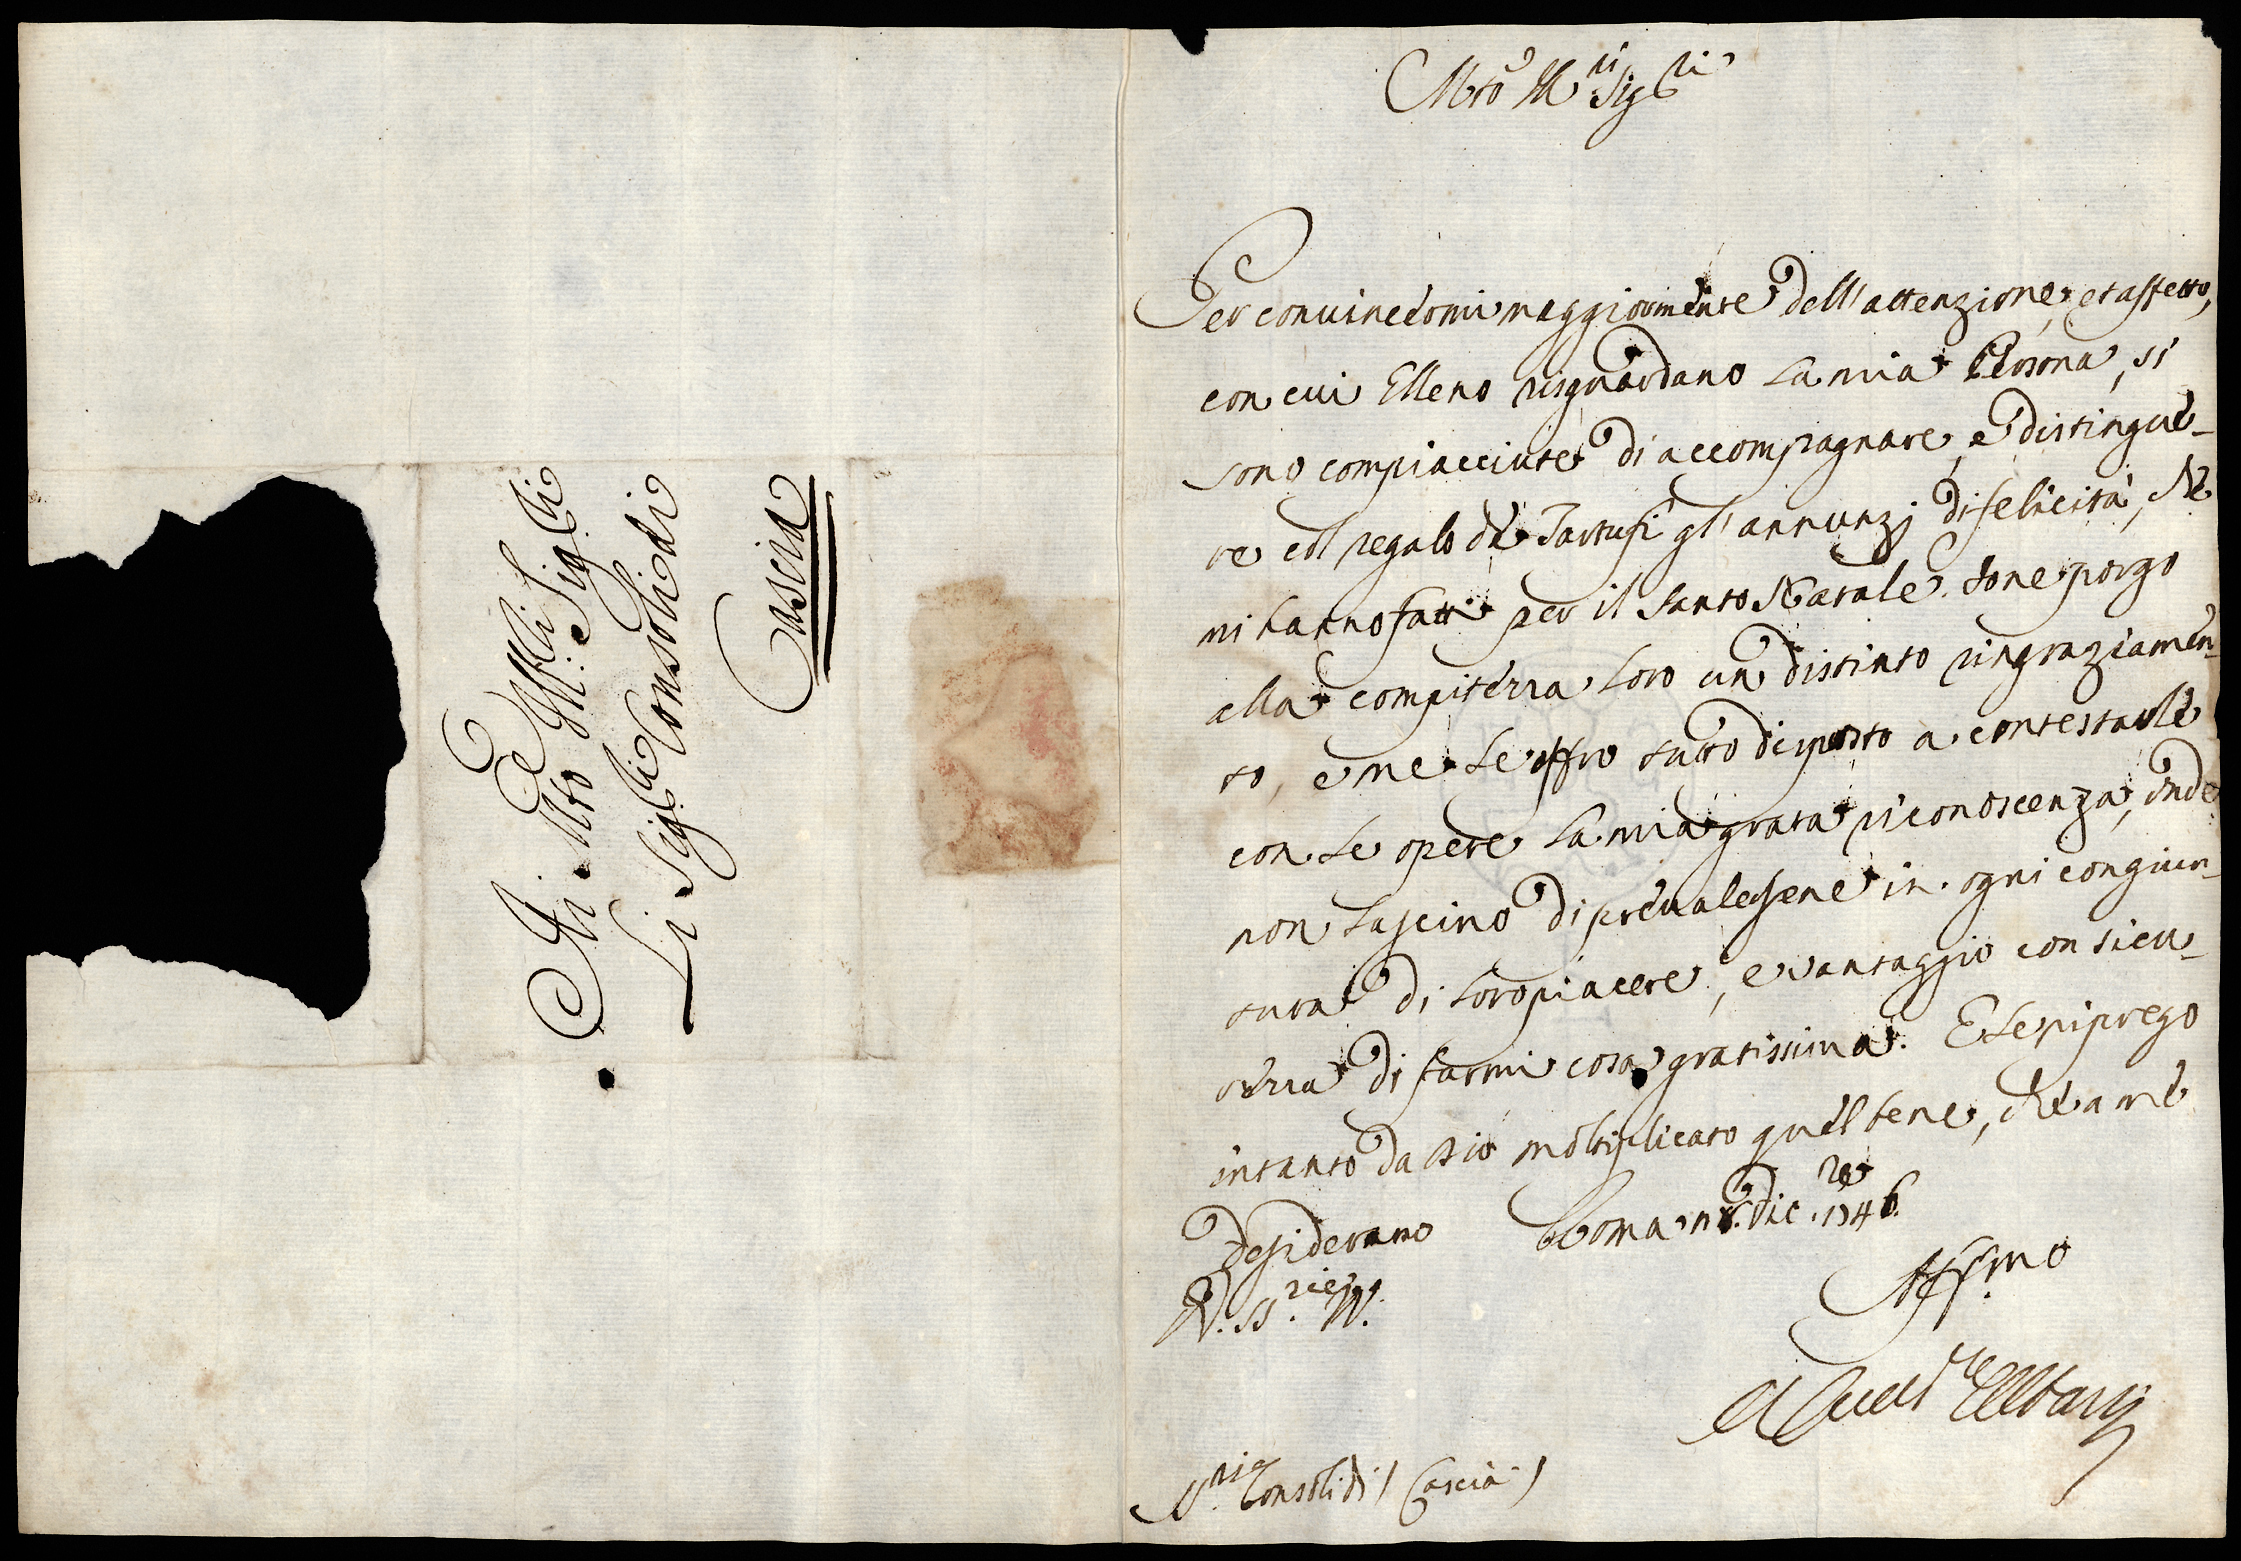 Alli Mto Ill:ri Sig:ri
Li Sig:ri Consolidi
Cascia
Mto Ill:ri Sig:ri
Per convincermi maggiormente dell'attenzione, et affetto,
con cui Elleno risguardano la mia Persona, si
sono compiacciute di accompagnare, e distingue-
re col regalo de Tartufi gl'annunzj di felicità, che
mi hanno fatti per il Santo Natale. Io ne porgo
alla compitezza loro un distinto ringraziamen-
to, e me le offro tutto disposto a contestarle
con le opere la mia grata riconoscenza, onde
non lascino di prevalersene in ogni congiun-
tura di loro piacere, e vantaggio con sicu-
rezza di farmi cosa gratissima. E le riprego
intanto da Dio moltiplicato quel bene, che a me
desiderano Roma dic.re 1746.
V. SS.rie
Aff.mo
Albani
SS.ri Consolidi / Cascia /